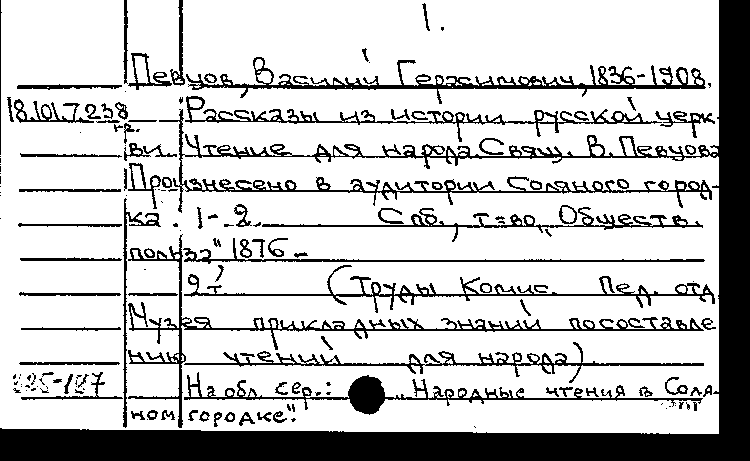 1.
Певцов, Василий Герасимович, 1836-1908.
18.101.7.238 Рассказы из истории русской церк-
1-2.
ви. Чтение для народа. Свящ. В. Певцова
Произнесено в аудитории Соляного город-
ка. 1-2. Спб., т-во „Обществ.
польза" 1876 -
2 т. (Труды Комис. Пед. отд.
Музея прикладных знаний по составле
нию чтений для народа).
На обл. сер.: „Народные чтения в Соля-
ном городке".